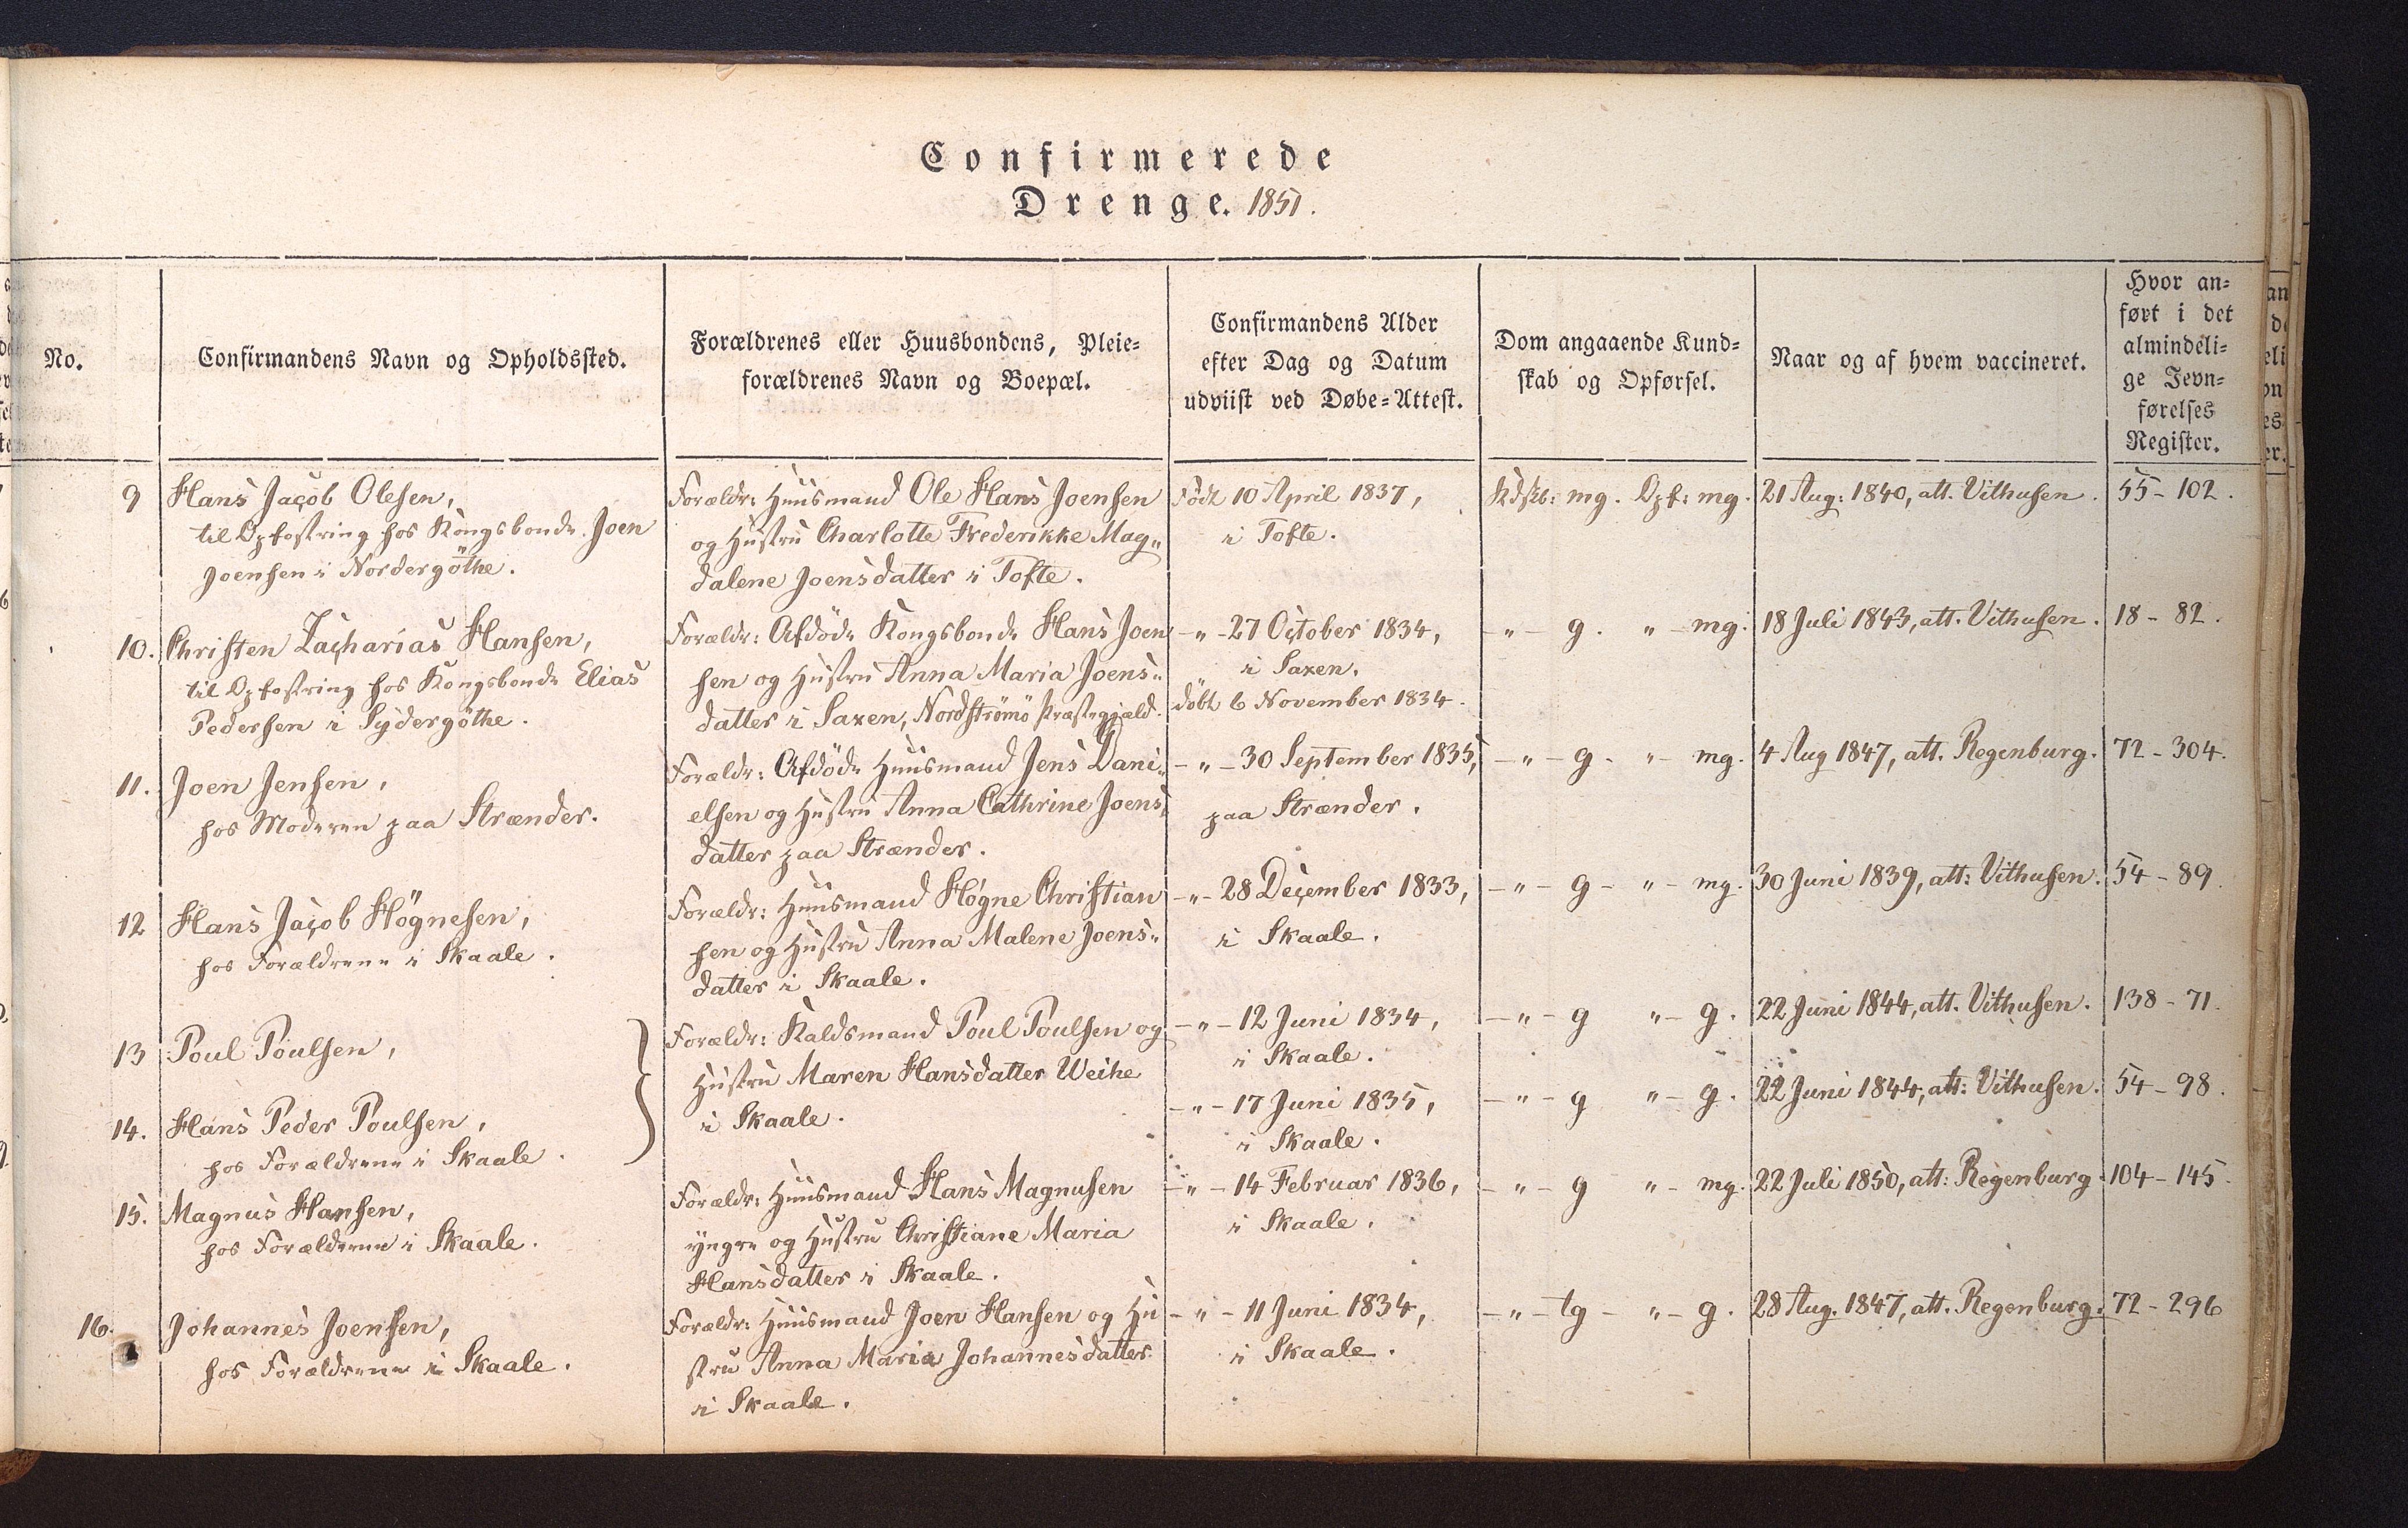 Confirmerede
Drenge. 1851.
No.
Confirmandens Navn og Opholdssted.
Forældrenes eller Huusbondens, Pleie-
forældrenes Navn og Boepæl.
Confirmandens Alder
efter Dag og Datum
udviist ved Døbe-Attest.
Dom angaaende Kund-
skab og Opførsel.
Naar og af hvem vaccineret.
Hvor an-
ført i det
almindeli-
ge Jevn-
førelses
Register.
9
Hans Jacob Olesen,
til Opfostring hos Kongsbonde Joen
Joensen i Nordergöthe.
Forældr: Huusmand Ole Hans Joensen
og Hustru Charlotte Frederikke Mag-
dalene Joensdatter i Tofte.
Födt 10 April 1837,
i Tofte.
Kdskb: mg. Opf: mg.
21 Aug: 1840, att. Vithusen.
55-102.
10.
Christen Zacharias Hansen,
til Opfostring hos Kongsbonde Elias
Pedersen i Sydergöthe.
Forældr: Afdöde Kongsbonde Hans Joen
sen og Hustru Anna Maria Joens-
datter i Saxen, Nordströmö Præstegjæld.
-"-27 October 1834,
i Saxen.
döbt 6 November 1834.
-"- g. "- mg.
18 Juli 1843, att. Vithusen.
18-82.
11.
Joen Jensen,
hos Moderen paa Strænder.
Forældr: Afdöde Huusmand Jens Dani-
elsen og Hustru Anna Cathrine Joens-
datter paa Strænder.
-"-30 September 1835,
paa Strænder.
-"- g - "- mg.
4 Aug 1847, att. Regenburg.
72-304.
12
Hans Jacob Högnesen,
hos Forældrene i Skaale.
Forældr: Huusmand Høgne Christian
sen og Hustru Anna Malene Joens-
datter i Skaale.
-"-28 December 1833,
i Skaale.
-"- g - "- mg.
30 Juni 1839, att: Vithusen.
54-89.
13
Poul Poulsen,
Forældr: Kaldsmand Poul Poulsen og
Hustru Maren Hansdatter Weihe
i Skaale.
-"-12 Juni 1834,
i Skaale.
-"- g "- g.
22 Juni 1844, att. Vithusen.
138-71.
14.
Hans Peder Poulsen,
hos Forældrene i Skaale.
-"-17 Juni 1835,
i Skaale.
-"- g "- g.
22 Juni 1844, att: Vithusen.
54-98.
15.
Magnus Hansen,
hos Forældrene i Skaale.
Forældr: Huusmand Hans Magnusen
yngre og Hustru Christiane Maria
Hansdatter i Skaale.
-"-14 Februar 1836,
i Skaale.
-"- g "- mg.
22 Juli 1850, att: Regenburg.
104-145.
16.
Johannes Joensen,
hos Forældrene i Skaale.
Forældr: Huusmand Joen Hansen og Hu
stru Anna Maria Johannesdatter
i Skaale.
-"-11 Juni 1834,
i Skaale.
-"- tg - "- g.
28 Aug. 1847, att. Regenburg.
72-296